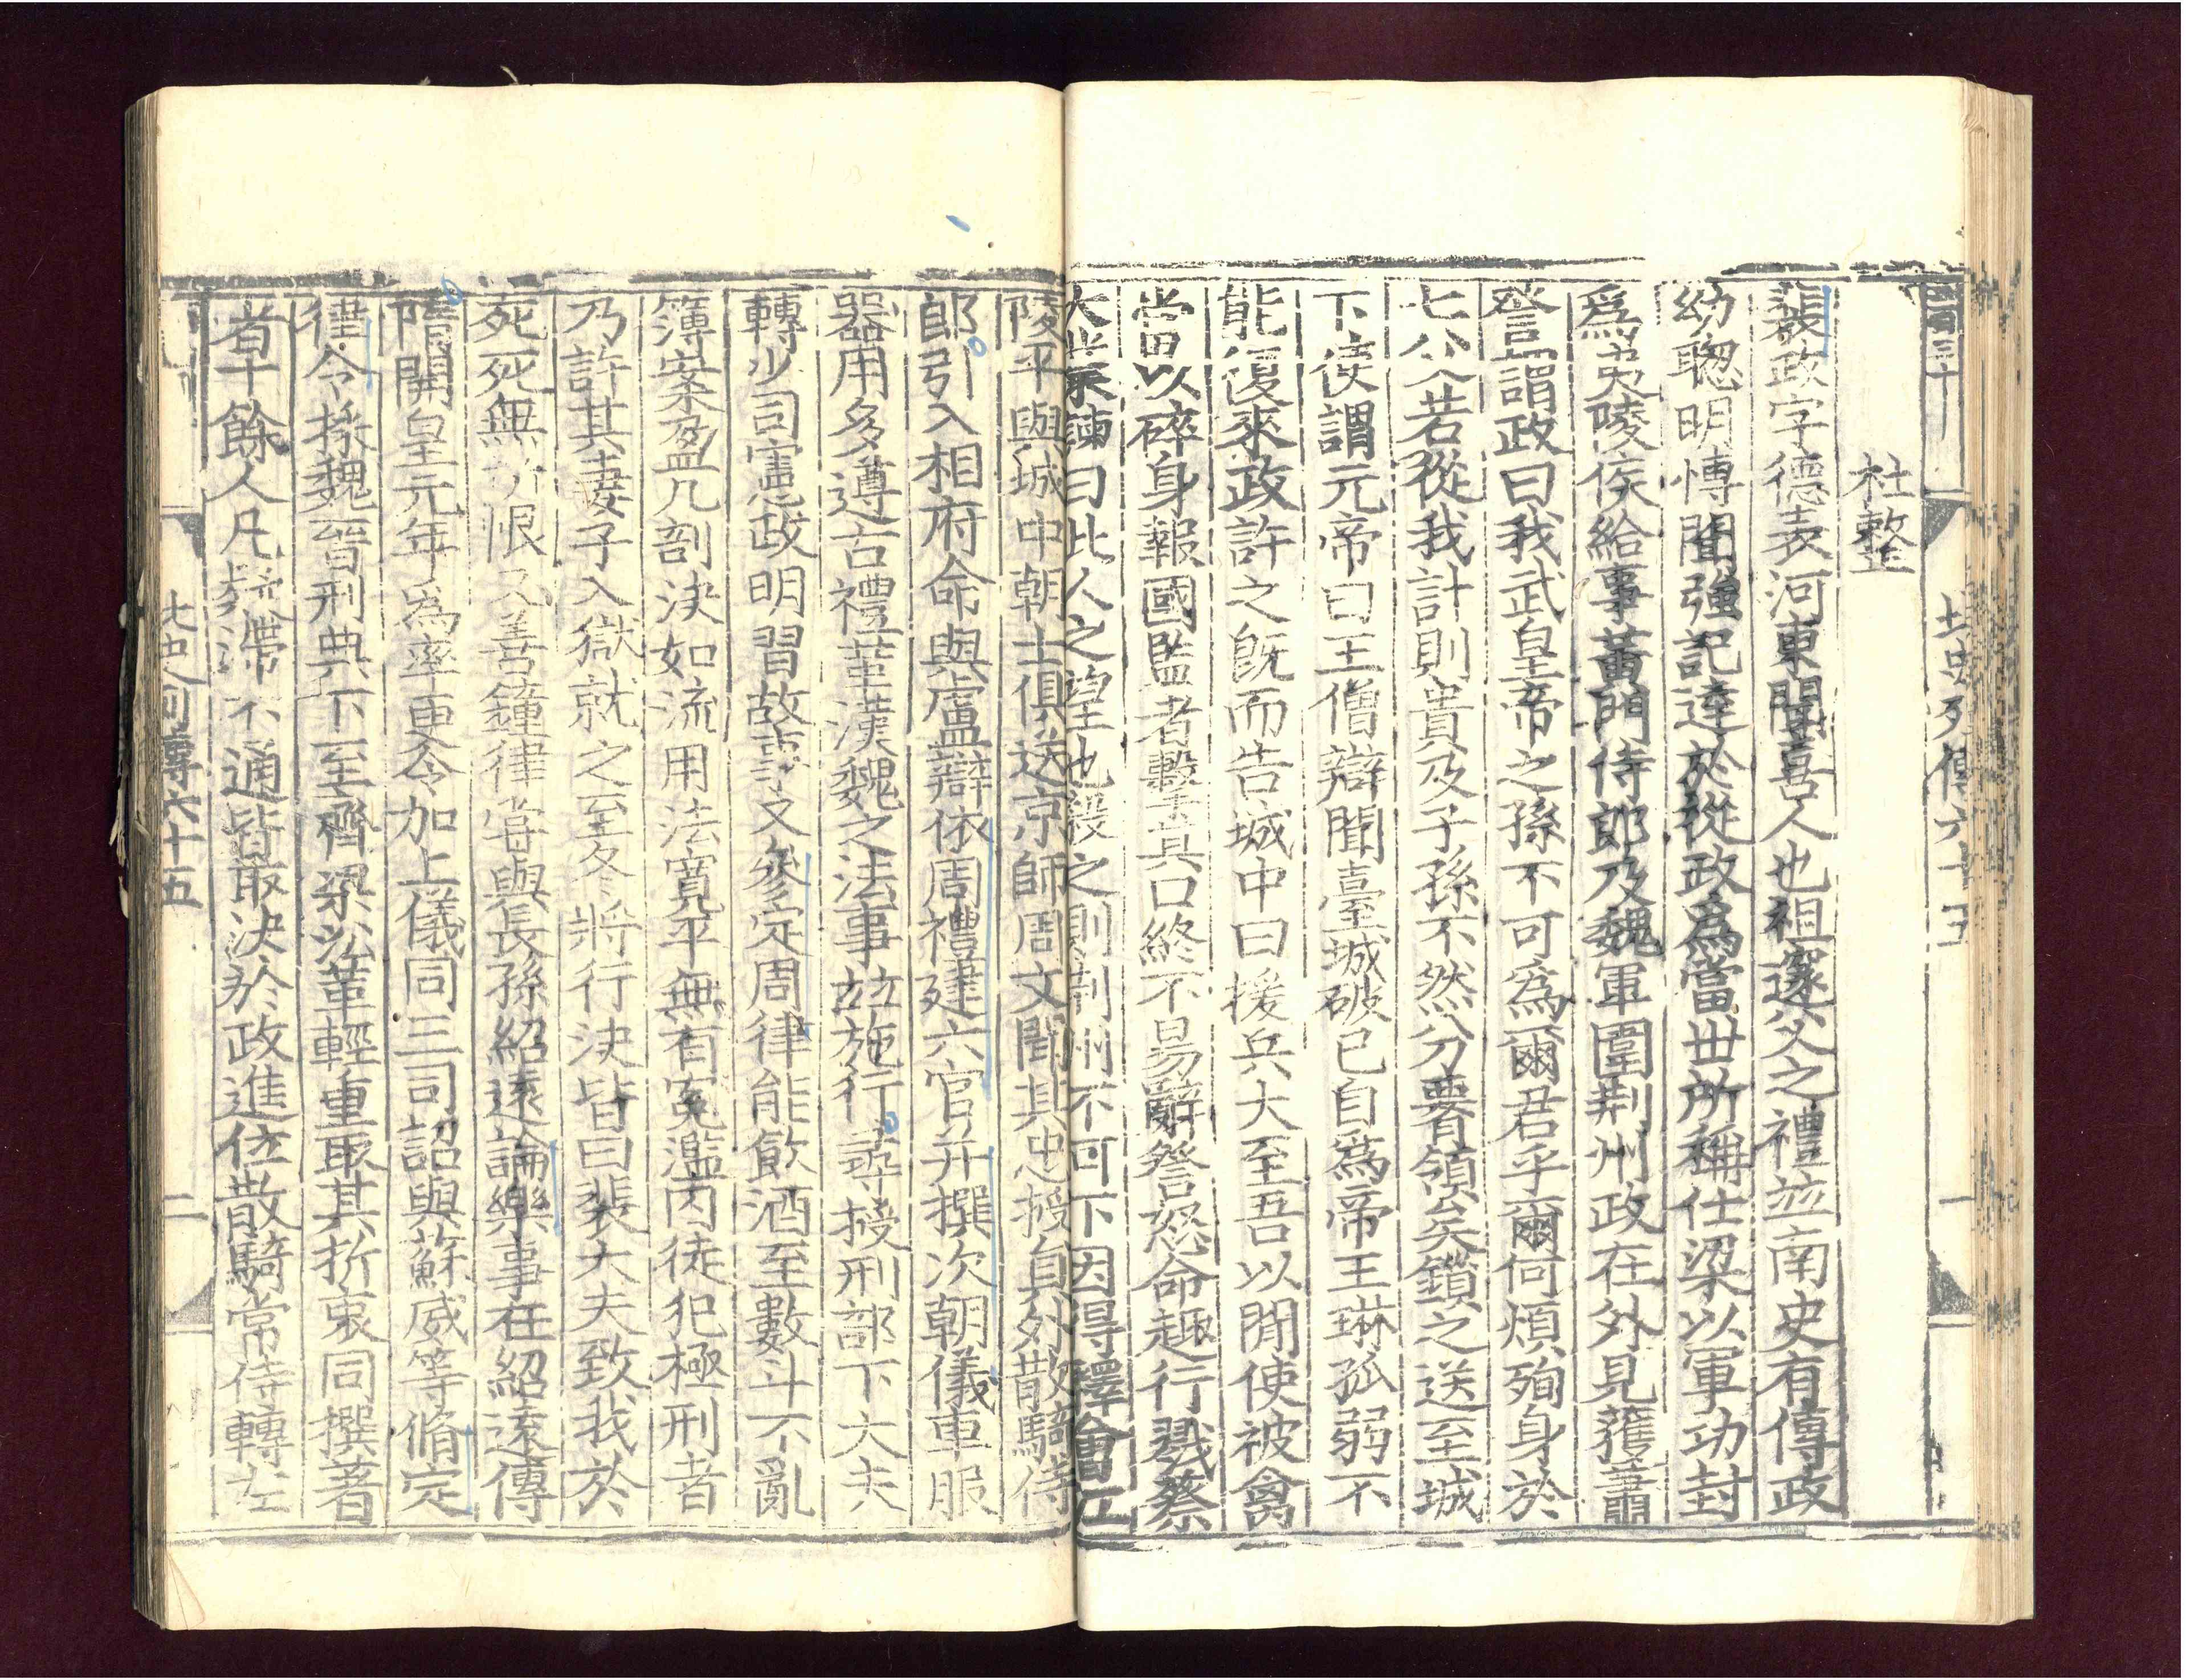 杜整
裴政字德表河東聞喜人也祖邃父之禮並南史有傳政
幼聦明愽聞強記達於從政爲當世所稱仕梁以軍功封
爲夷陵侯給事黃門侍郎及魏軍圍荆州政在外見獲蕭
詧謂政曰我武皇帝之孫不可爲爾君乎爾何煩殉身於
七父若從我計則貴及子孫不然分要領矣鎖之送至城
下使謂元帝曰王僧辯聞臺城破已自爲帝王琳孤弱不
能復來政許之旣而告城中曰援兵大至吾以閒使被禽
當以碎身報國監者擊其口終不易辭詧怒命趣行戮蔡
大業諫曰此人之望也殺之則荆州不可下因得釋會江
陵平與城中朝士俱送京師周文聞其忠授員外散騎侍
郎引入相府命與盧辯依周禮建六官并撰次朝儀車服
器用多遵古禮革漢魏之法事並施行尋授刑部下大夫
轉少司憲政明習故事又叅定周律能飲酒至數斗不亂
簿案盈几剖決如流用法寬平無有寃濫囚徒犯極刑者
乃許其妻子入獄就之至冬將行決皆曰裴大夫致我於
死死無所恨又善鐘律嘗與長孫紹遠論樂事在紹遠傳
隋開皇元年爲率更令加上儀同三司詔與蘇威等脩定
律令採魏晉刑典下至齊梁㳂革輕重取其折衷同撰著
者十餘人凡疑滯不通皆取決於政進位散騎常侍轉左
北史列傳六十五
二
北史列傳六十五
一